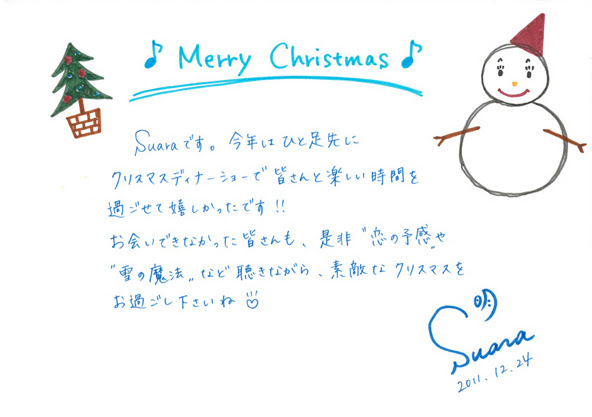 ♪ Merry Christmas ♪
Suaraです。今年はひと足先に
クリスマスディナーショーで皆さんと楽しい時間を
過ごせて嬉しかったです!!
お会いできなかった皆さんも、是非"恋の予感"や
"雪の魔法"など聴きながら、素敵なクリスマスを
お過ごし下さいね♡
Suara
2011.12.24